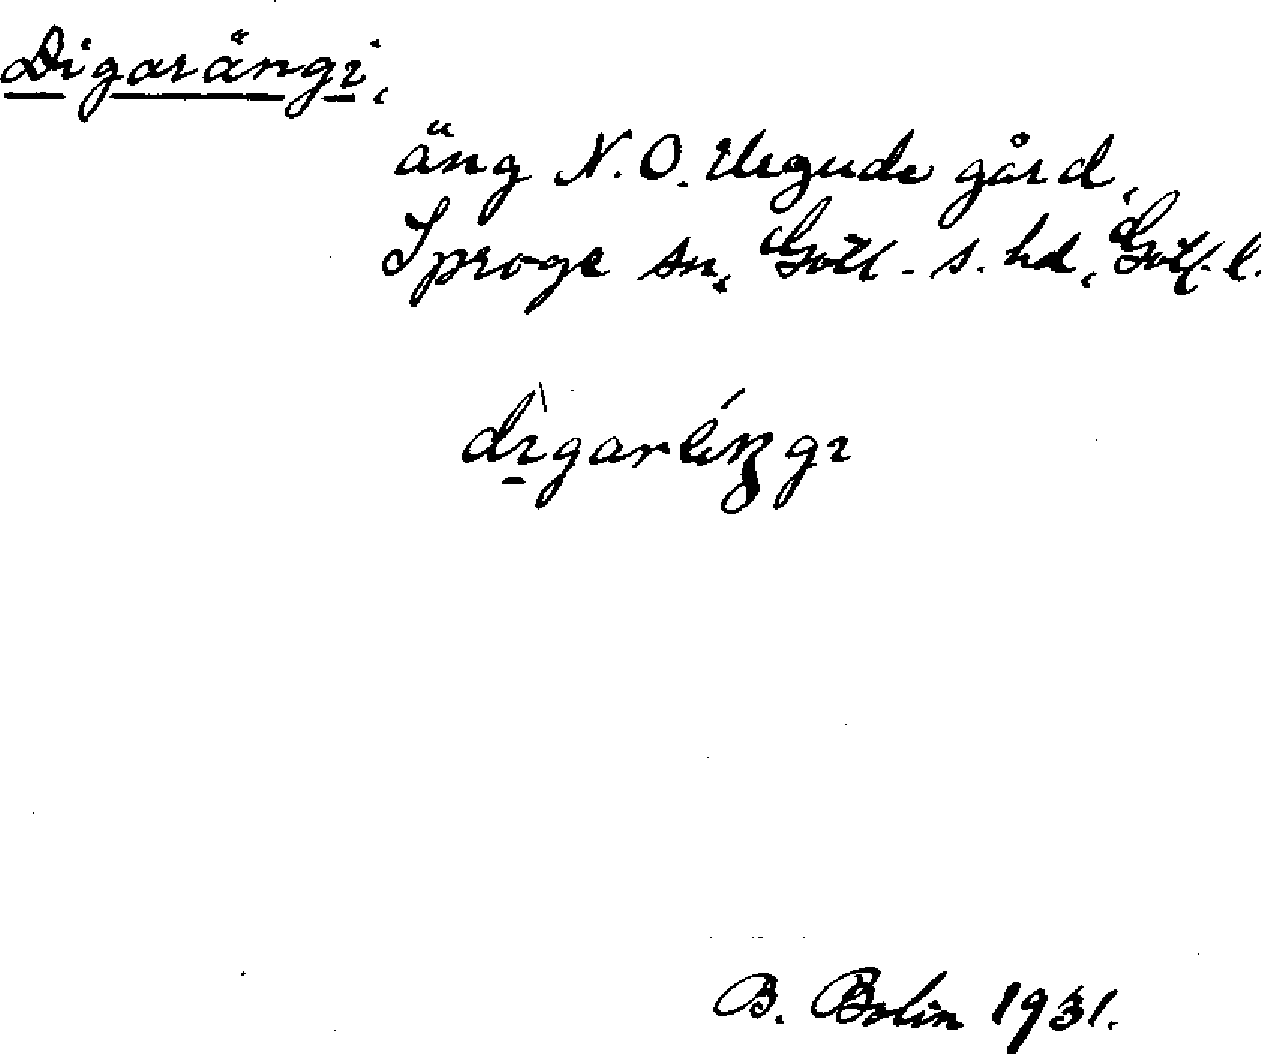 Digarängi,
äng N.O. Urgude gård,
Sproge sn, Gotl. s. hd, Gotl. l.
B. Bolin 1931.